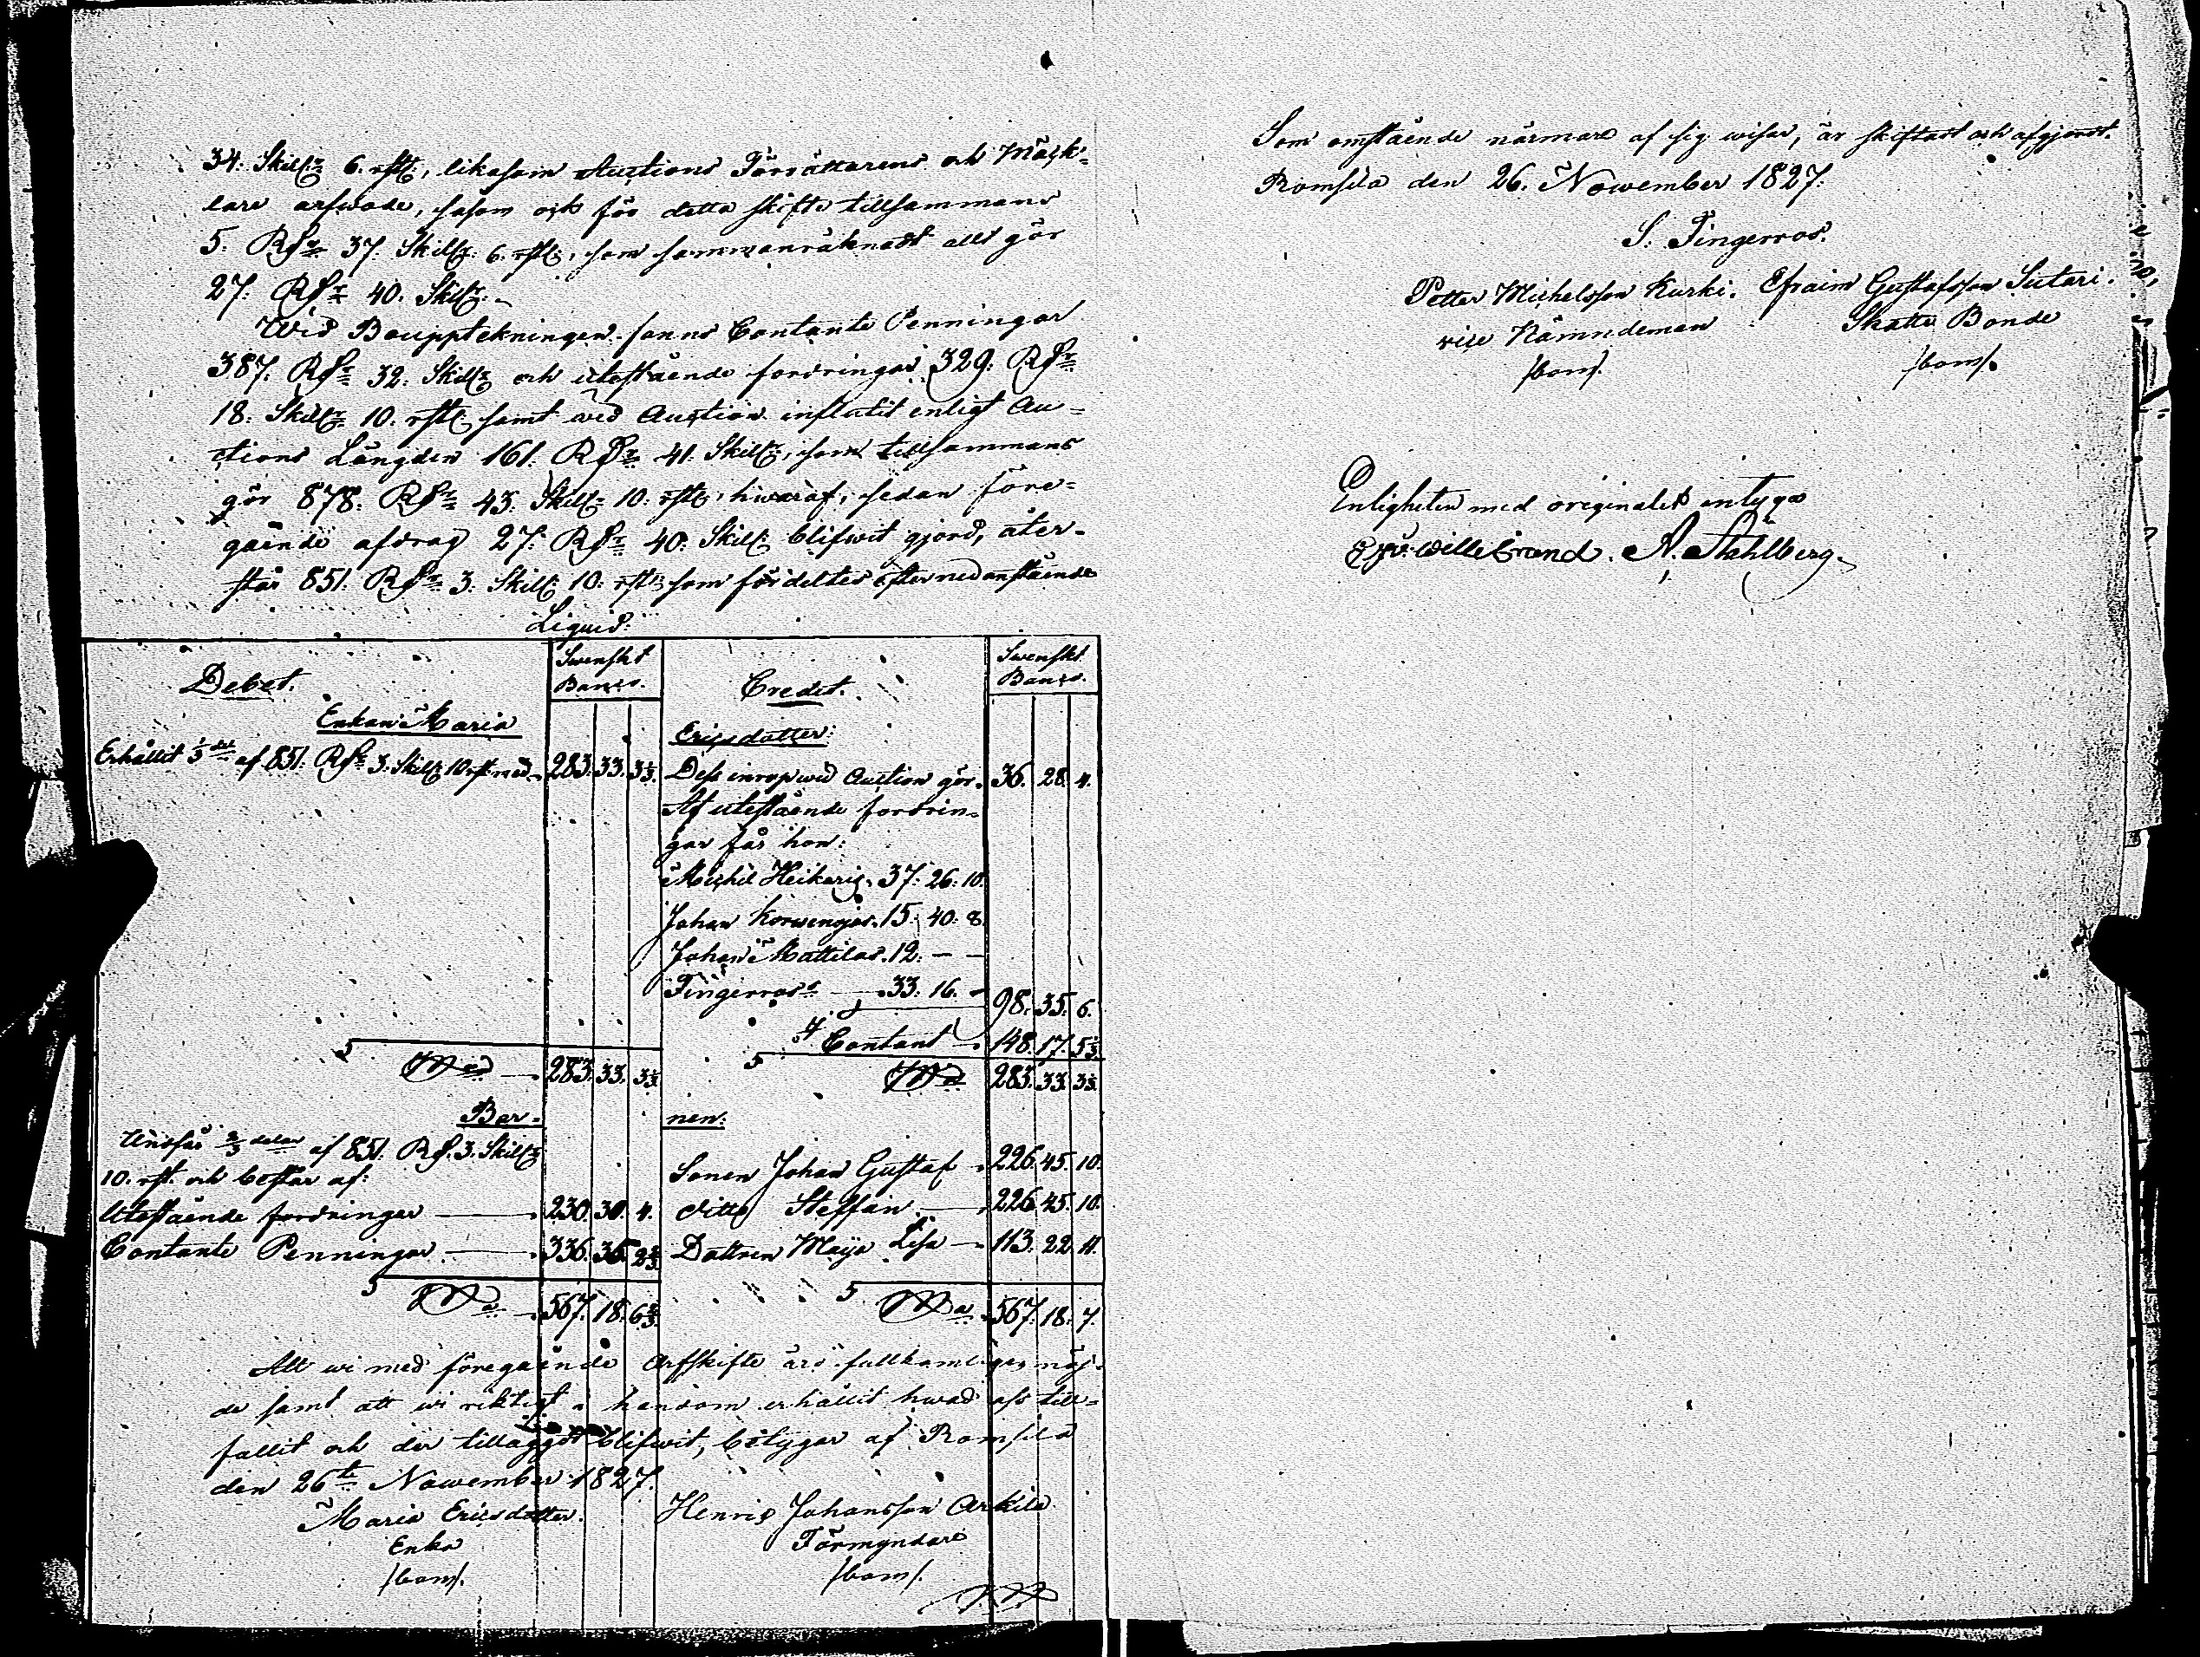 34. Skill:r 6. rst:, likasom Auctions Förrättarens och Mäck-
lare arfwode, såsom ock för detta skifte tillsammans
5. Rd:r 37. Skill: 6. rst:, som sammanräknadt allt gör
27. Rd:r 40. Skill:r
Wid Boupptekningen fanns Contante Penningar
387. Rd:r 32. Skill:r och utestående fordringar 329. Rd:r
18. Skill:r 10. rst: samt wid Auction influtit enligt Au-
ctions Längden 161. Rd:r 41. Skill:r, som tillsammans
gör 878. Rd:r 43. Skill:r 10. rst:, hwaraf, sedan före-
gående afdrag 27. Rd:r 40. Skill: blifwit gjord, åter-
står 851. Rd:r 3. Skill: 10. rst: som fördeltes efter nedanstående
Liquid:
Debet.
Swenskt
Banco.
Credit.
Swenskt
Banco.
Enkan Maria
Ericsdotter:
Erhållit 1/3 del af 851. Rd:r 3. Skill:r 10 rst: med 283. 33. 3 1/3.
Dess inrop wid Auction gör. 36. 28. 4.
Af utestående fordrin-
gar får hon:
Michel Heikeris. 37. 26. 10.
Johan Korwenojas. 15. 40. 8.
Johan Mattilas. 12. — —
Fingerroos 33. 16. — 98. 35. 6.
Contant 148. 17. 5 1/3.
S:ma 283. 33. 3 1/3.
S:ma 283. 33. 3 1/3.
Bar-
nen:
Undfår 2/3 delar af 851. Rd. 3. Skill:r
10. rst. och består af:
Utestående fordringar 230. 30. 4.
Contante Penningar 336. 36. 2 2/3.
S:ma 567. 18. 6 2/3.
Sonen Johan Gustaf 226. 45. 10.
ditto Steffan 226. 45. 10.
Dottren Maija Lisa 113. 22. 11.
S:ma 567. 18. 7.
Att wi med föregående Arfskifte äro fullkomligen nöj-
de samt att wi riktigt i händom erhållit hwad oss till-
fallit och der tillaggdt blifwit, betygar af Romsila
den 26te November 1827.
Maria Ericsdotter.
Enka
/bom/.
Henric Johansson Arkila
Förmyndare
/bom/.
Som omstående närmare af sig wisar, är skiftadt och afgjordt.
Romsila den 26. November 1827.
S. Fingerroos.
Petter Michelsson Kurki. Efraim Gustafsson Sutari.
vice Nämndeman Skatte Bonde
/bom/. /bom/.
Enligheten med originalet intyga
v. Willebrand. A. Stahlberg.